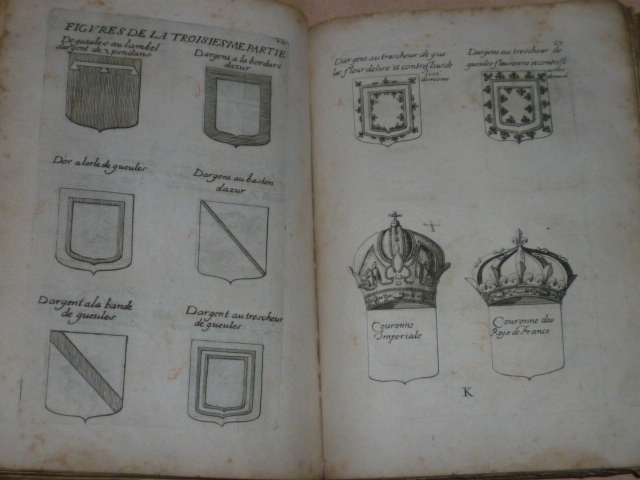 FIGVRES DE LA TROISIESME PARTIE
De gueules au lambel
dargent de 3 pendans
Dargent a la bordure
dazur
Dor a lorle de gueules
Dargent au baston
dazur
Dargent a la bande
de gueules
Dargent au trescheur
de gueules
Dargent au trescheur de gue
les fleurdelise et contrefleurde
lise
Dargent au trescheur de
gueules fleuronne et contrefl
Couronne
Imperiale
Couronne des
Roys de France
K